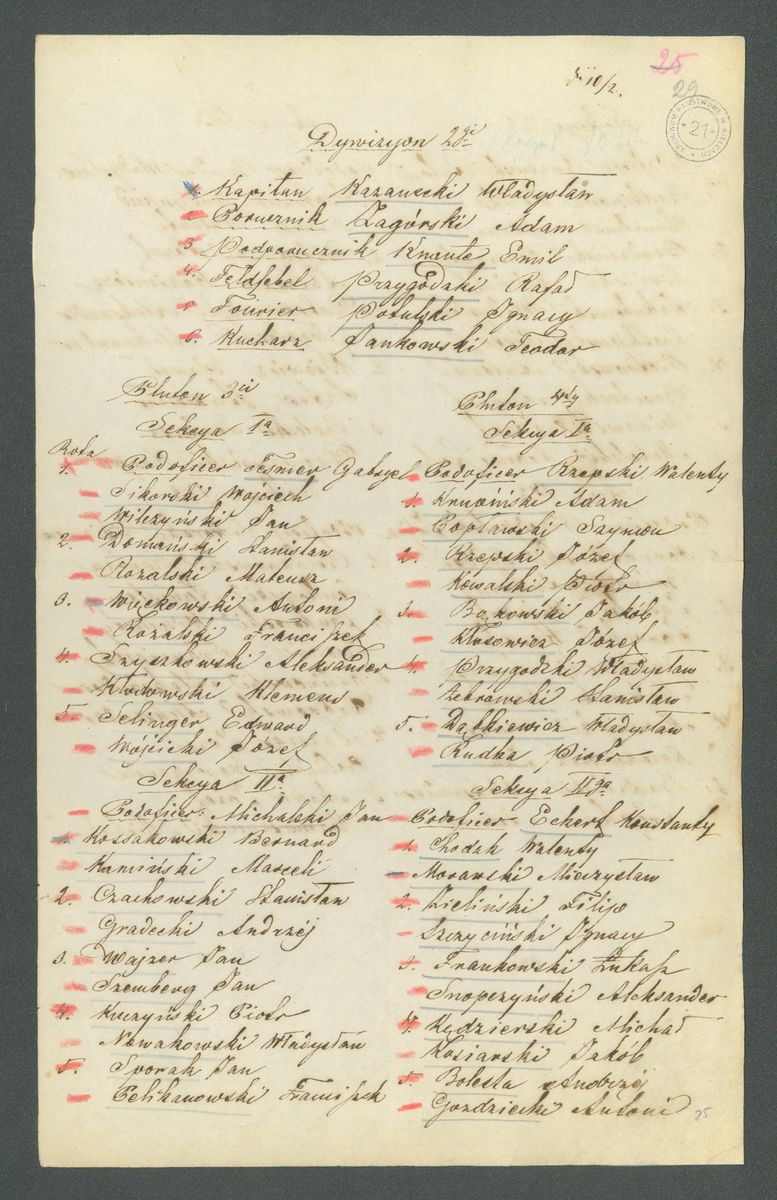 25
29
10/2.
ARCHIWUM PAŃSTWOWE W KIELCACH
21
Dywizyon 2gi
1. Kapitan Kazanecki Władysław
2 Porucznik Zagórski Adam
3 Podporucznik Knaute Emil
4. Feldfebel Przygodzki Rafał
5 Fourier Potulski Ignacy
6. Kucharz Jankowski Teodor
Pluton 3ci
Sekcya Ia
Rota
Podoficer Tesmer Gabryel
1. Sikorski Wojciech
Wilczyński Jan
2. Domański Stanisław
Rozalski Mateusz
3. Więckowski Antoni
Rozalski Franciszek
4. Szyszkowski Aleksander
Kłodowski Klemens
5. Selinger Edward
Wójcicki Józef
Sekcya IIa
Podoficer: Michalski Jan
1. Kossakowski Bernard
Kamiński Marceli
2. Czachowski Stanisław
Gradecki Andrzéj
3. Wajzer Jan
Szemberg Jan
4. Kuczyński Piotr
Nowakowski Władysław
5. Sworah Jan
Pelikanowski Franciszek
Pluton 4ty
Sekcya Ia
Podoficer Rzepski Walenty
1. Krupiński Adam
Popławski Szymon
2. Rzepski Józef
Kowalski Piotr
3. Bąkowski Jakób
Kłosowicz Józef
4. Przygodzki Władysław
Żebrowski Stanisław
5. Dątkiewicz Władysław
Rudka Piotr
Sekcya IIga
Podoficer Eckert Konstanty
1. Chodak Walenty
Morawski Mieczysław
2. Zieliński Filip
Szczyciński Ignacy
3. Frankowski Łukasz
Snopczyński Aleksander
4. Kędzierski Michał
Kosiarski Jakób
5. Bolesta Andrzéj
Gozdziecki Antoni
25